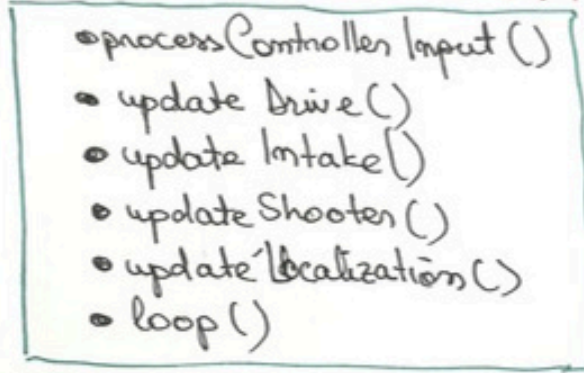 • processControllerInput()
• updateDrive()
• updateIntake()
• updateShooter()
• updateLocalization()
• loop()